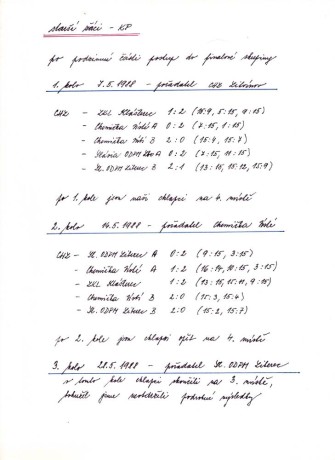 starší žáci - KP
po podzimní části postup do finálové skupiny
1. kolo 7.5.1988 - pořadatel CHZ Litvínov
CHZ - ZKL Klášterec 1:2 (15:9, 5:15, 9:15)
- Chemička Ústí A 0:2 (7:15, 1:15)
- Chemička Ústí B 2:0 (15:4, 15:7)
- Slávia ODPM A 0:2 (7:15, 11:15)
- Sl. ODPM Liberec B 2:1 (13:15, 15:12, 15:9)
po 1. kole jsou naši chlapci na 4. místě
2. kolo 14.5.1988 - pořadatel Chemička Ústí
CHZ - Sl. ODPM Liberec A 0:2 (9:15, 3:15)
- Chemička Ústí A 1:2 (16:14, 10:15, 3:15)
- ZKL Klášterec 1:2 (13:15, 15:11, 9:15)
- Chemička Ústí B 2:0 (15:3, 15:4)
- Sl. ODPM Liberec B 2:0 (15:2, 15:7)
po 2. kole jsou chlapci opět na 4. místě
3. kolo 28.5.1988 - pořadatel Sl. ODPM Liberec
v tomto kole chlapci skončili na 3. místě,
bohužel jsme neobdrželi podrobné výsledky